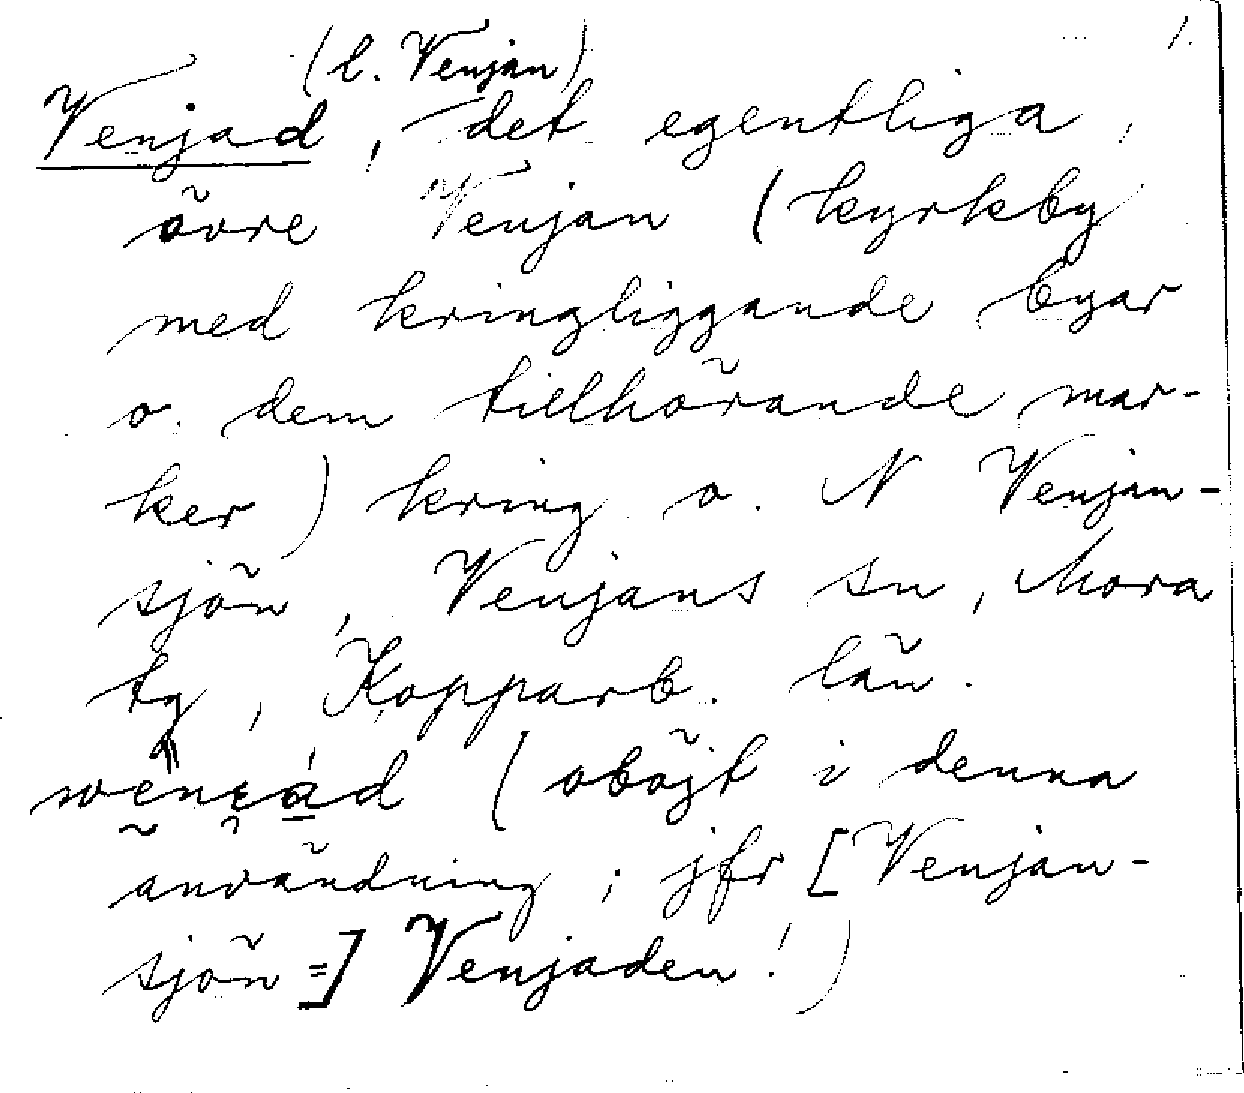 1.
(l. Venjan)
Venjad, det egentliga,
övre Venjan (kyrkby
med kringliggande byar
o. dem tillhörande mar-
ker) kring o. N Venjan-
sjön, Venjans sn, Mora
tg, Kopparb. län.
(oböjt i denna
användning; jfr [Venjan-
sjön =] Venjaden!)